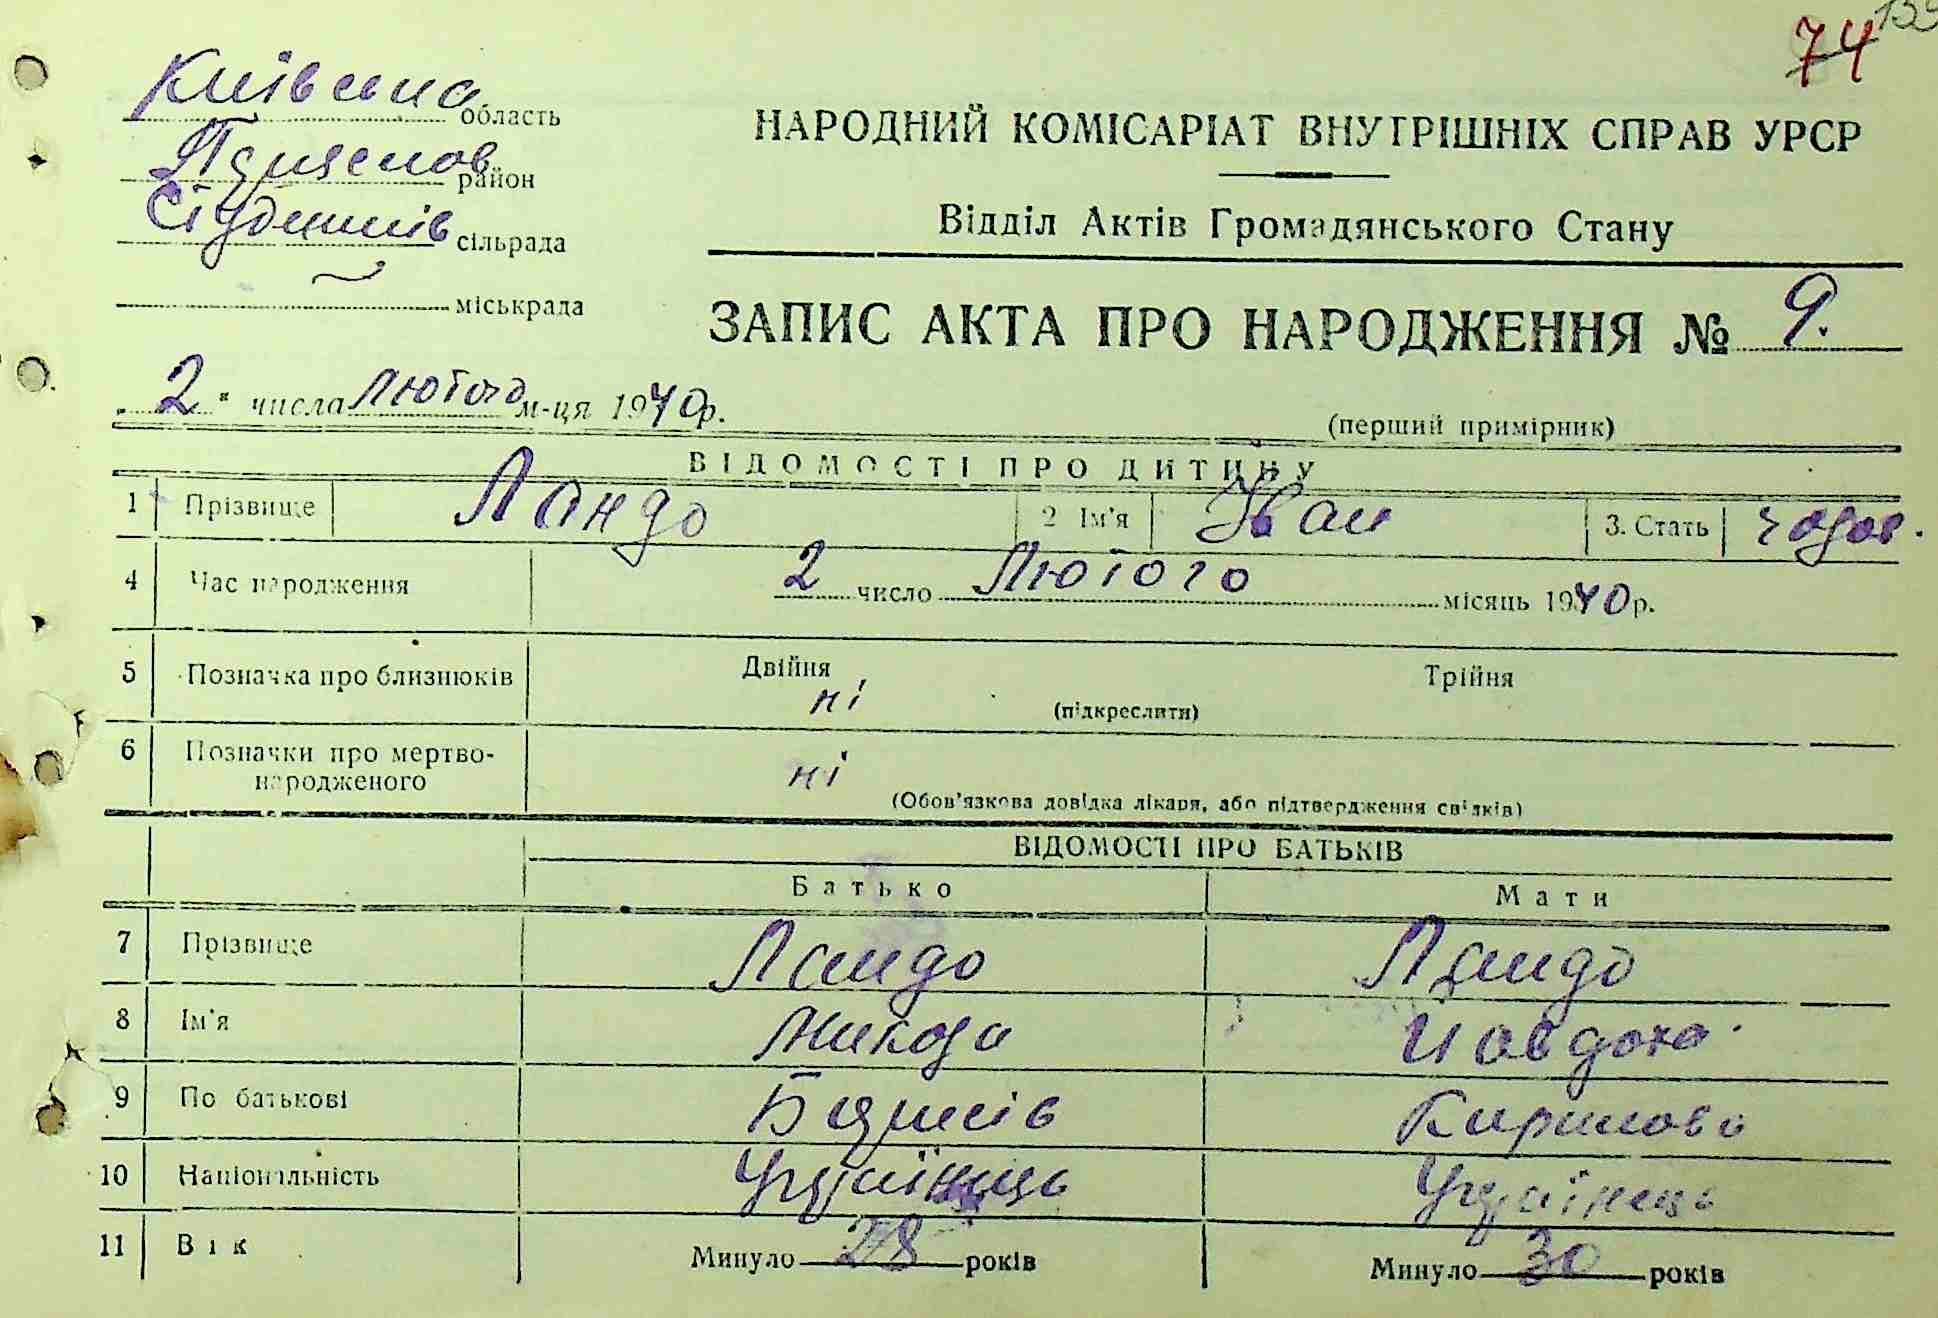 74
Київська область
район
Студеників сільрада
міськрада
НАРОДНИЙ КОМІСАРІАТ ВНУТРІШНІХ СПРАВ УРСР
Відділ Актів Громадянського Стану
ЗАПИС АКТА ПРО НАРОДЖЕННЯ № 9.
„2" числа лютого м-ця 1940 р.
(перший примірник)
ВІДОМОСТІ ПРО ДИТИНУ
1 Прізвище Ландо 2 Ім'я Іван 3. Стать чолов.
4 Час народження 2 число Лютого місяць 1940 р.
5 Позначка про близнюків Двійня Трійня
ні
(підкреслити)
6 Позначки про мертво-
народженого ні
(Обов'язкова довідка лікаря, або підтвердження свідків)
ВІДОМОСТІ ПРО БАТЬКІВ
Батько Мати
7 Прізвище Ландо Ландо
8 Ім'я Микола
9 По батькові Кирилова
10 Національність Українець Українець
11 Вік Минуло 28 років Минуло 30 років